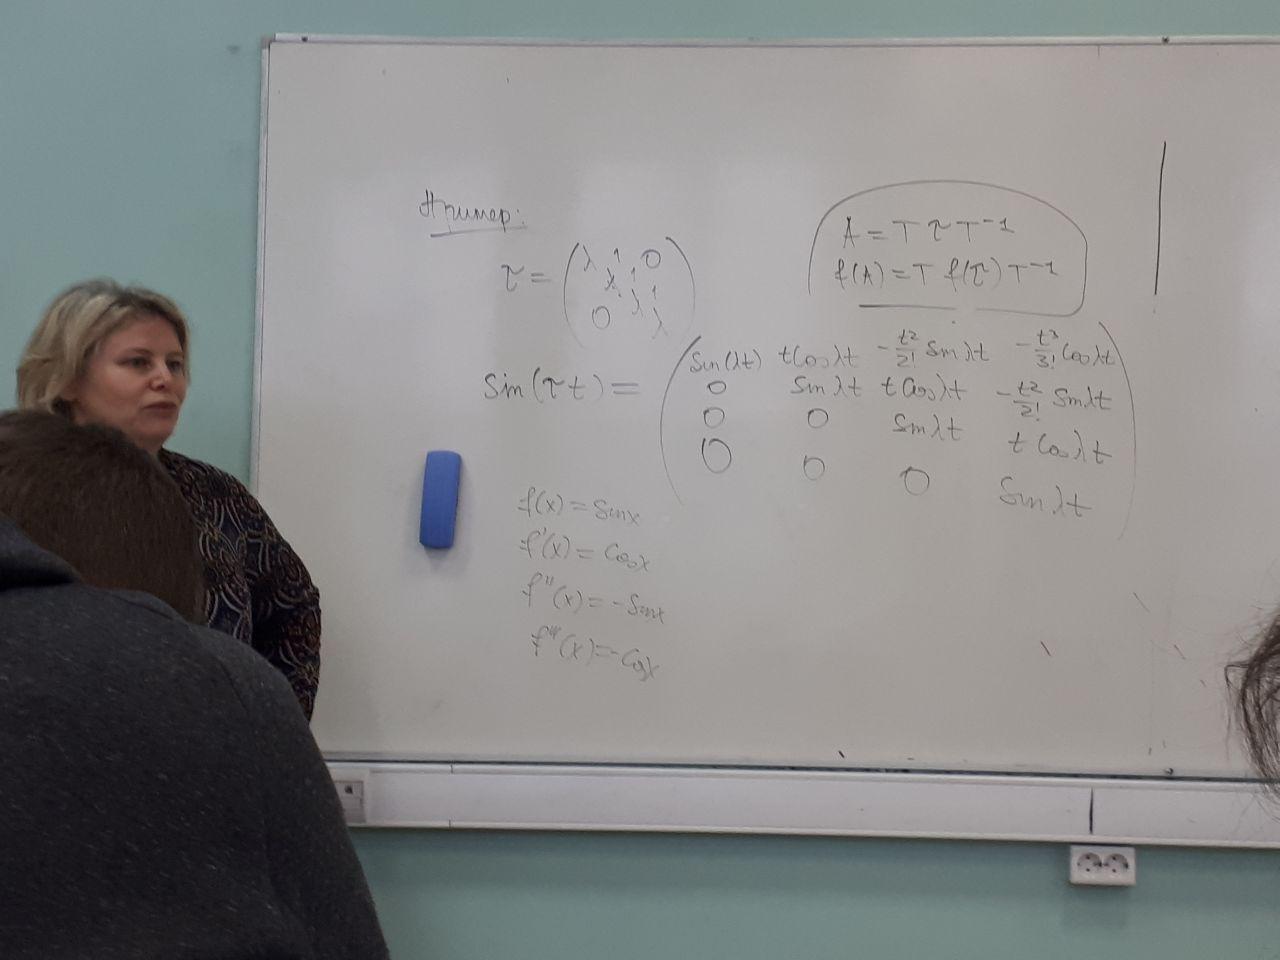 Пример:
τ = ( λ 1 0
λ 1
λ 1
0 λ )
A = T τ T⁻¹
f(A) = T f(τ) T⁻¹
sin(τt) = ( sin(λt) t cosλt -t²/2! sinλt -t³/3! cosλt
0 sinλt t cosλt -t²/2! sinλt
0 0 sinλt t cosλt
0 0 0 sinλt )
f(x) = sinx
f'(x) = cosx
f''(x) = -sinx
f'''(x) = -cosx